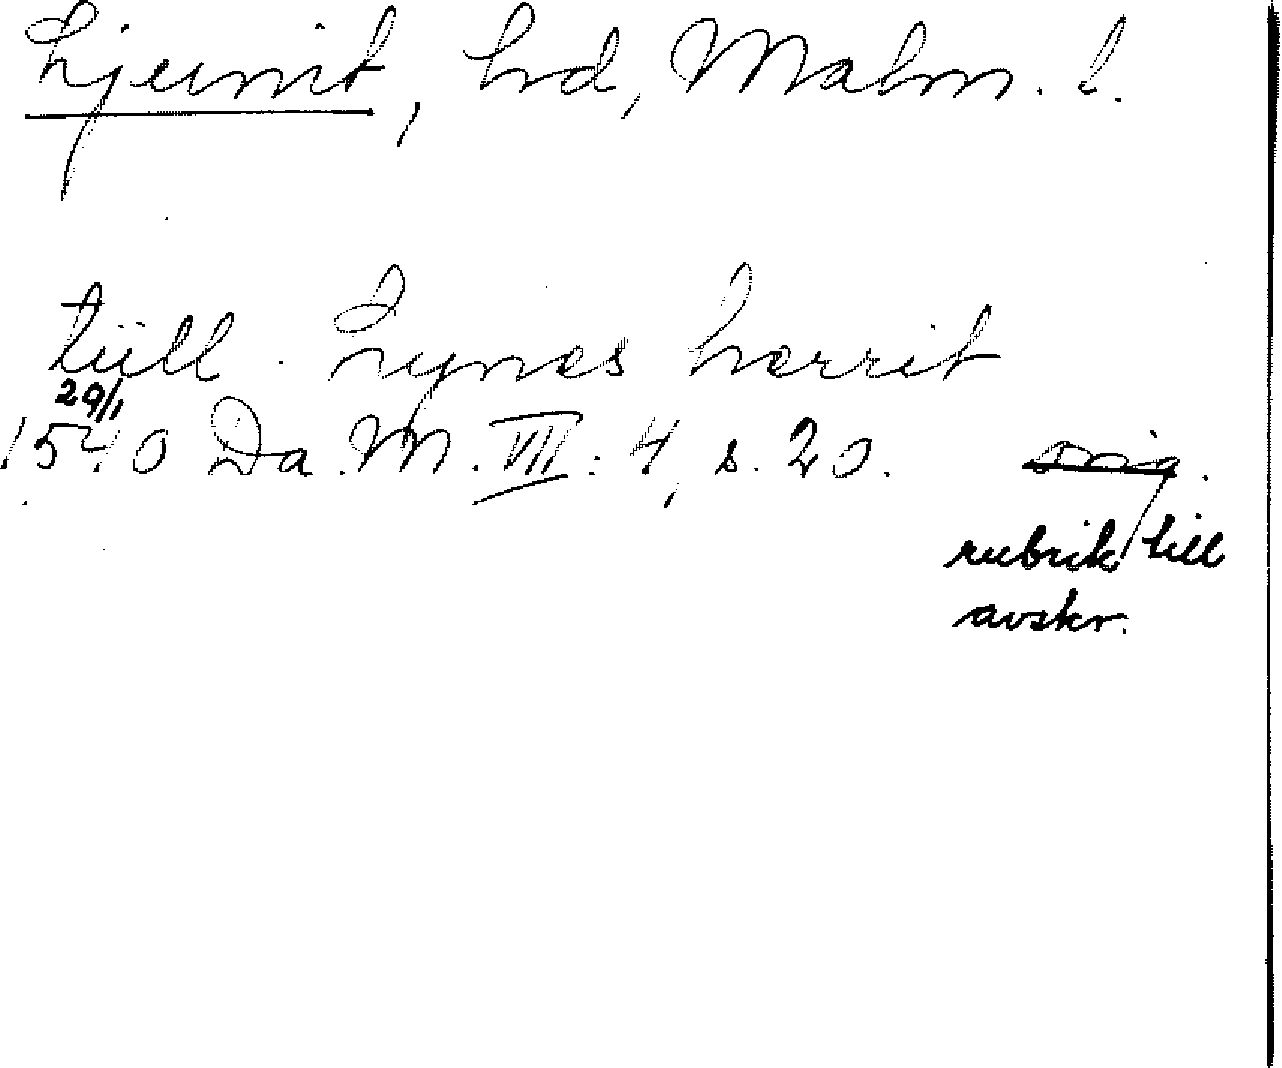 Ljunit, hd, Malm. l.
tiill Lynes herrit
29/1
1540 Da. M. VII: 4, s. 20. orig.
rubrik till
avskr.